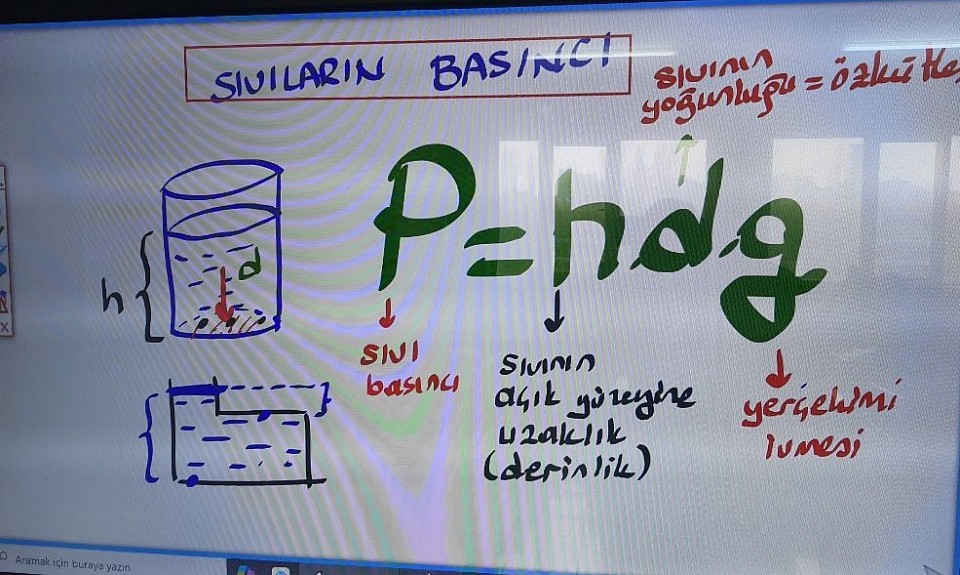 SIVILARIN BASINCI
sıvının
yoğunluğu = özkütle
P=hdg
h
d
sıvı
basıncı
sıvının
açık yüzeyine
uzaklık
(derinlik)
yerçekimi
ivmesi
Aramak için buraya yazın